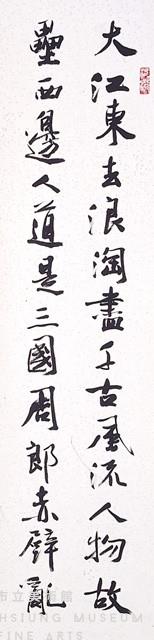 大江東去浪淘盡千古風流人物故
壘西邊人道是三國周郎赤壁亂
市立美術館
HSIUNG MUSEUM
FINE ARTS